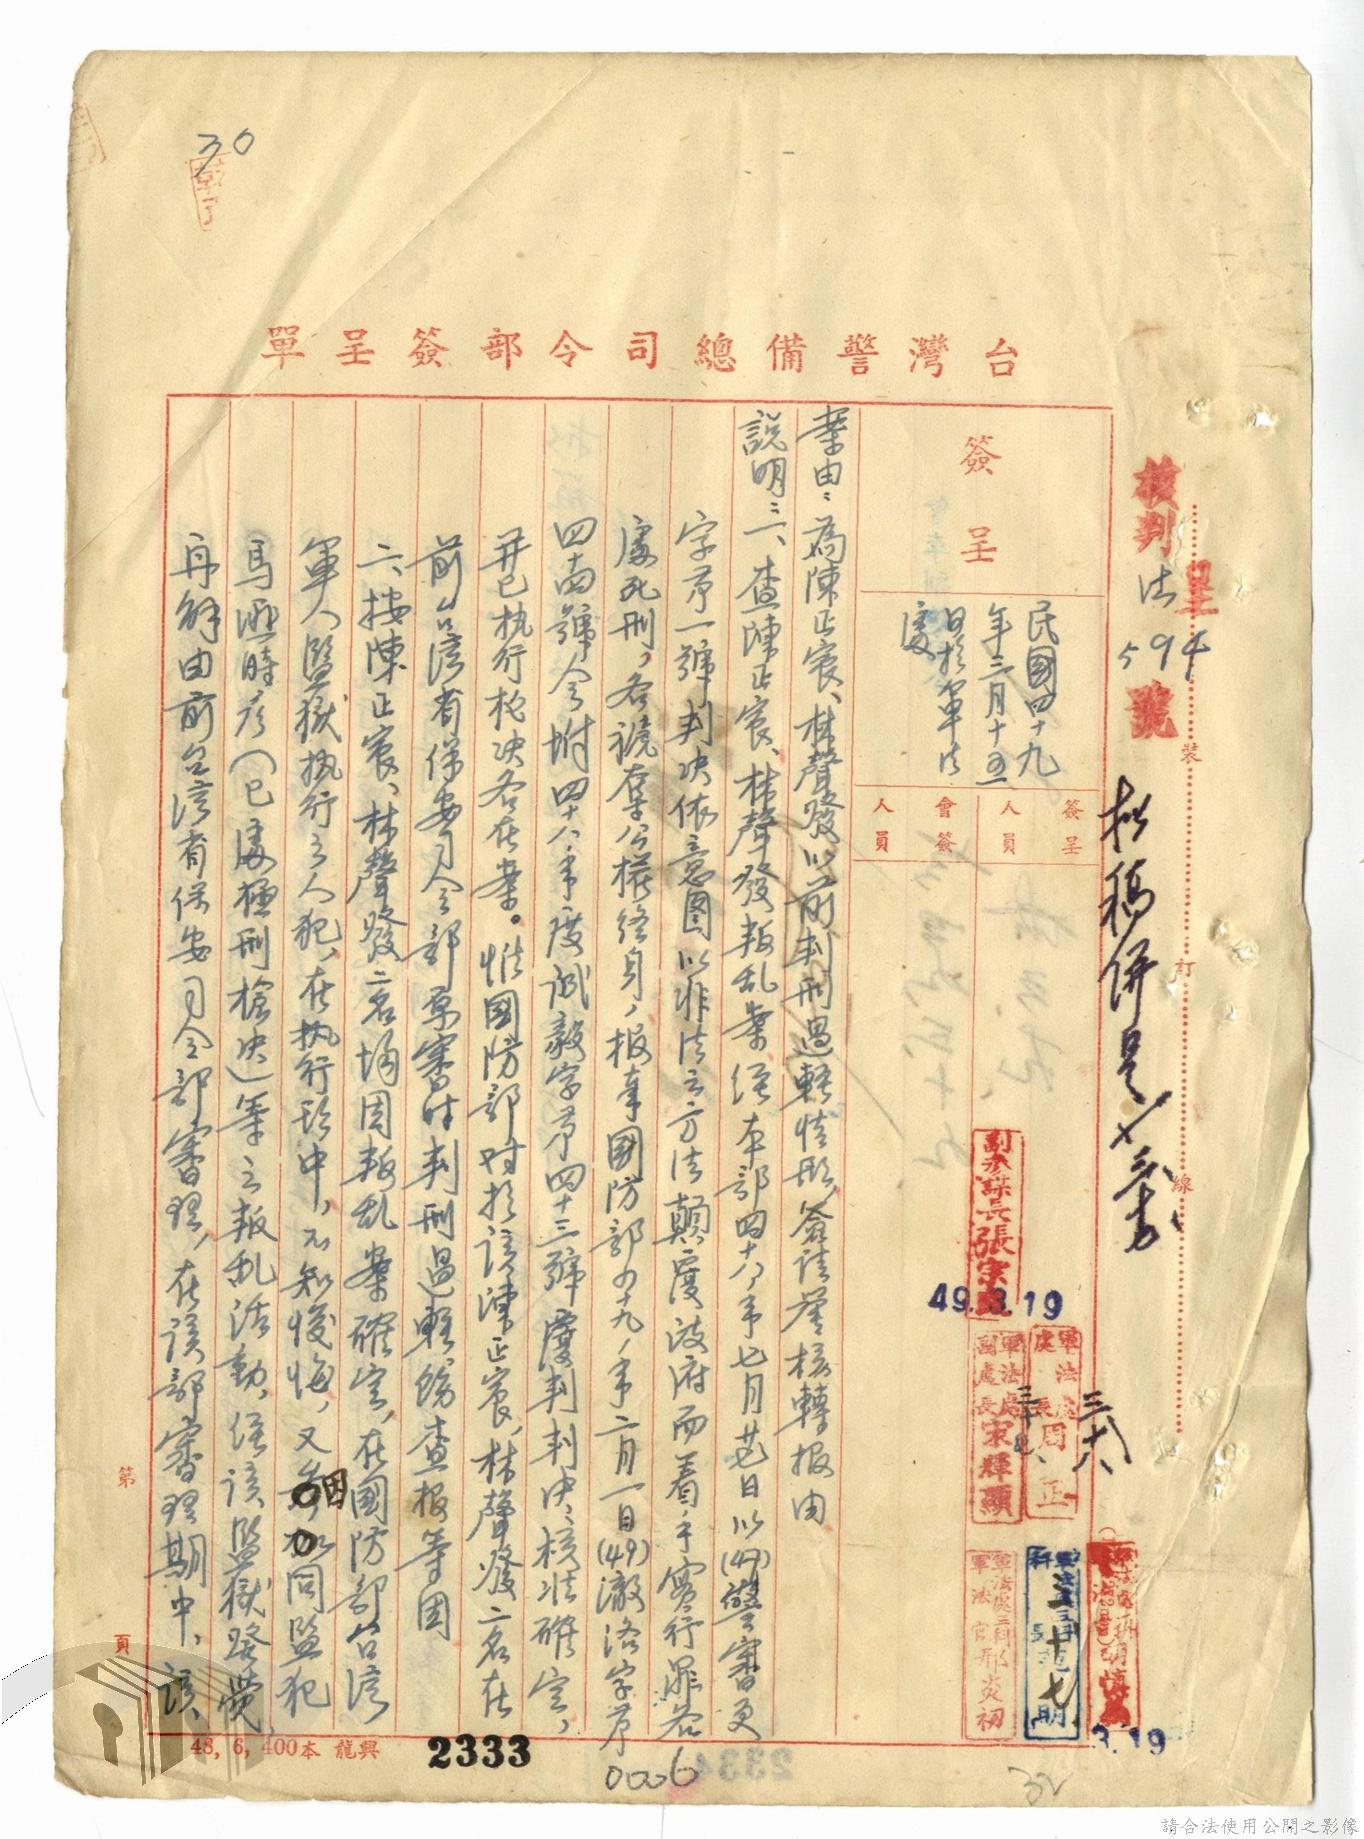 30
台灣警備總司令部簽呈單
核判
法
594
號
擬稿併呈
簽呈
民國四十九
年三月十五
日於軍法
處
簽呈
人員
會簽
人員
案由：為陳正宸、林聲發以前判刑過輕情形，簽請鑒核轉報由
說明：一、查陳正宸、林聲發叛乱案經本部四十八年七月廿七日以(47)警審更
字第一號判决依意图以非法之方法顛覆政府而着手實行罪各
處死刑，各褫奪公權終身，报奉國防部四十九年二月一日(49)澈洛字第
四十四號令附四十八年度誠毅字第四十三號覆判判决，核准確定，
并已执行枪决各在案。惟國防部对於該陳正宸、林聲發二名在
前台湾省保安司令部原審时判刑過輕飭查报等因
二、按陳正宸、林聲發二名均因叛乱案確定，在國防部台湾
軍人監獄执行之人犯，在执行於中，不知悛悔，又因同監犯
馬時彥(已處極刑槍决)等之叛乱活動，经該監獄發覺，
再解由前台湾省保安司令部審理，在該部審理期中，該
副參謀長張宗
49.3.19
軍法處
處長周正
三十八
軍法處
副處長宋輝顯
軍法處三科
軍法官邢炎初
三十七
3.19
裝
訂
線
第
頁
48, 6, 400本 龍興
2333
0006
請合法使用公開之影像